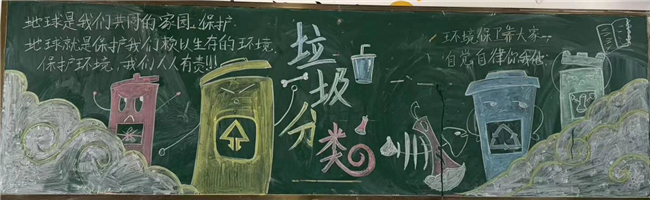 地球是我们共同的家园。保护
地球就是保护我们赖以生存的环境，
保护环境，我们人人有责!!!
垃圾分类
环境保护靠大家，
自觉自律你我他